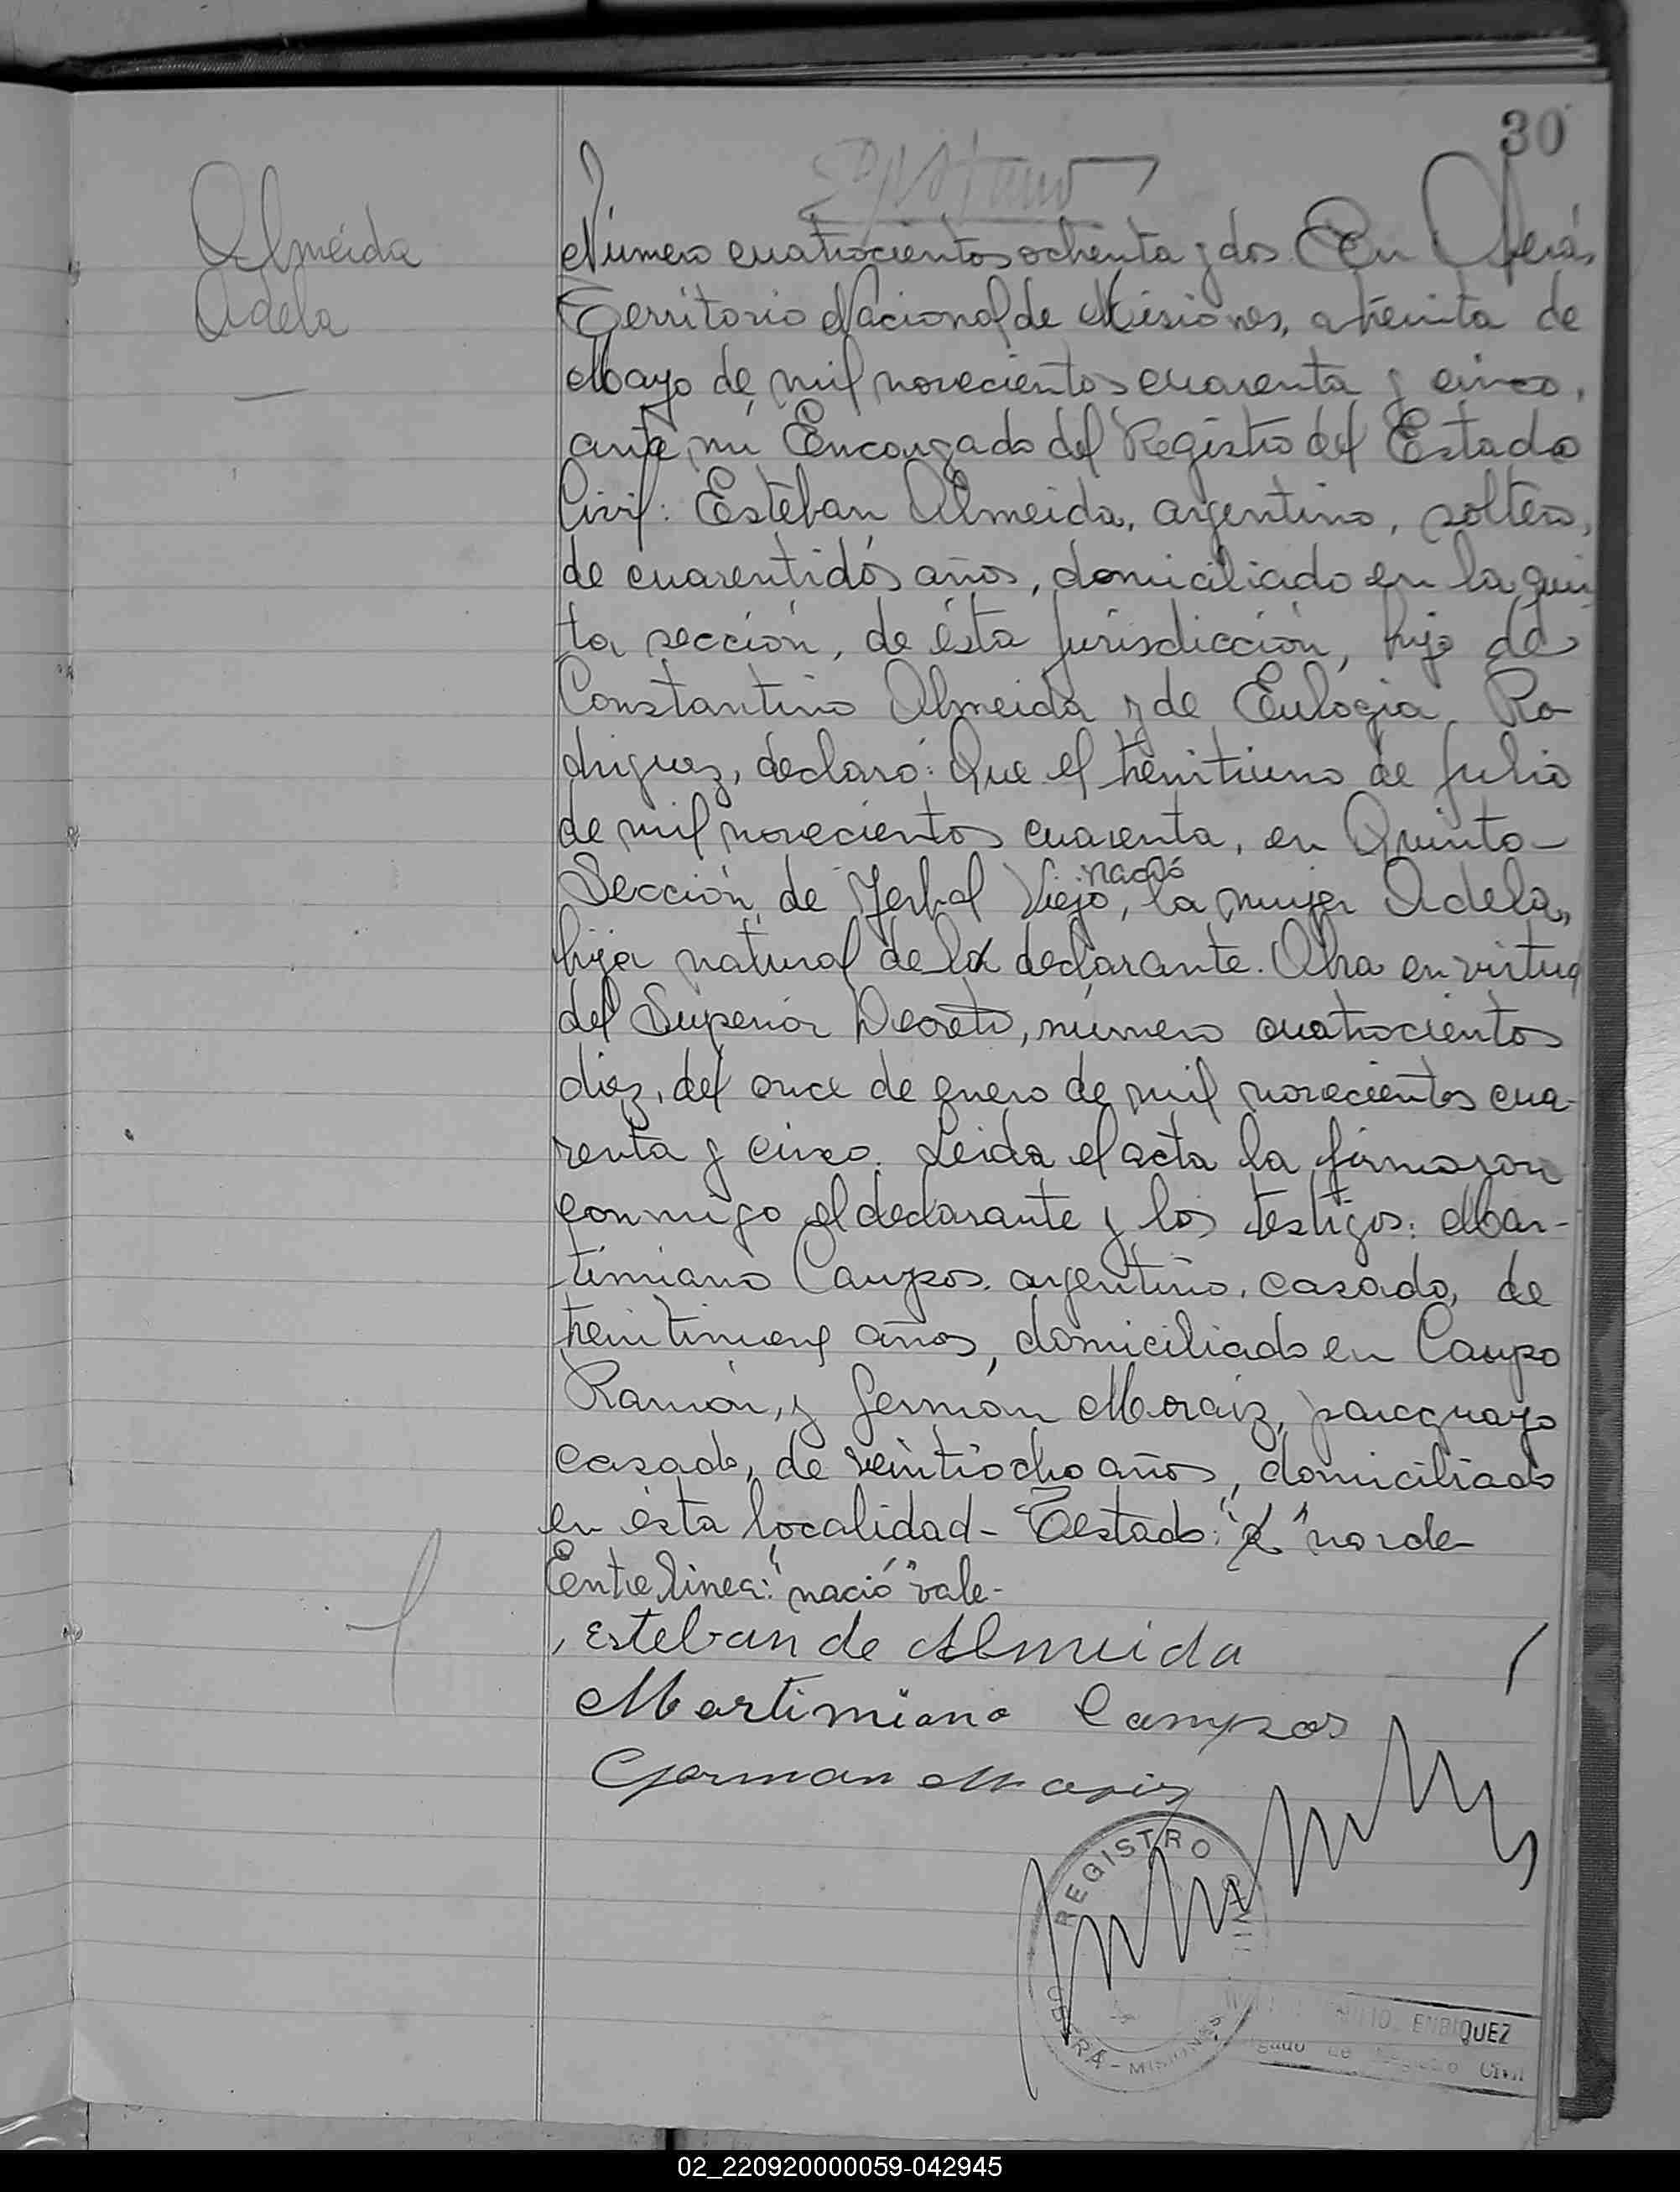 30
Almeida
Adela
Número cuatrocientos ochenta y dos. En Oberá,
Territorio Nacional de Misiones, a treinta de
Mayo de mil novecientos cuarenta y cinco,
ante mi Encargado del Registro del Estado
Civil: Esteban Almeida, argentino, soltero,
de cuarentidós años, domiciliado en la quin
ta sección, de ésta jurisdicción, hijo de
Constantino Almeida y de Eulogia Ro-
driguez, declaró: Que el treintiuno de Julio
de mil novecientos cuarenta, en Quinta-
nació
Sección de Yerbal Viejo, la mujer Adela,
hija natural de la declarante. Obra en virtud
del Superior Decreto, número cuatrocientos
diez, del once de enero de mil novecientos cua-
renta y cinco. Leida el acta la firmaron
conmigo el declarante y los testigos: Mar-
timiano Campos, argentino, casado, de
treintinueve años, domiciliado en Campo
Ramón, y Germán Moraiz, paraguayo
casado, de veintiocho años, domiciliado
en ésta localidad - Testado: "a" no vale
Entre linea: "nació" vale-
Esteban de Almeida
Martimiano Campos
German
REGISTRO CIVIL
OBERÁ - MISIONES
ENRIQUEZ
Civil
02_220920000059-042945